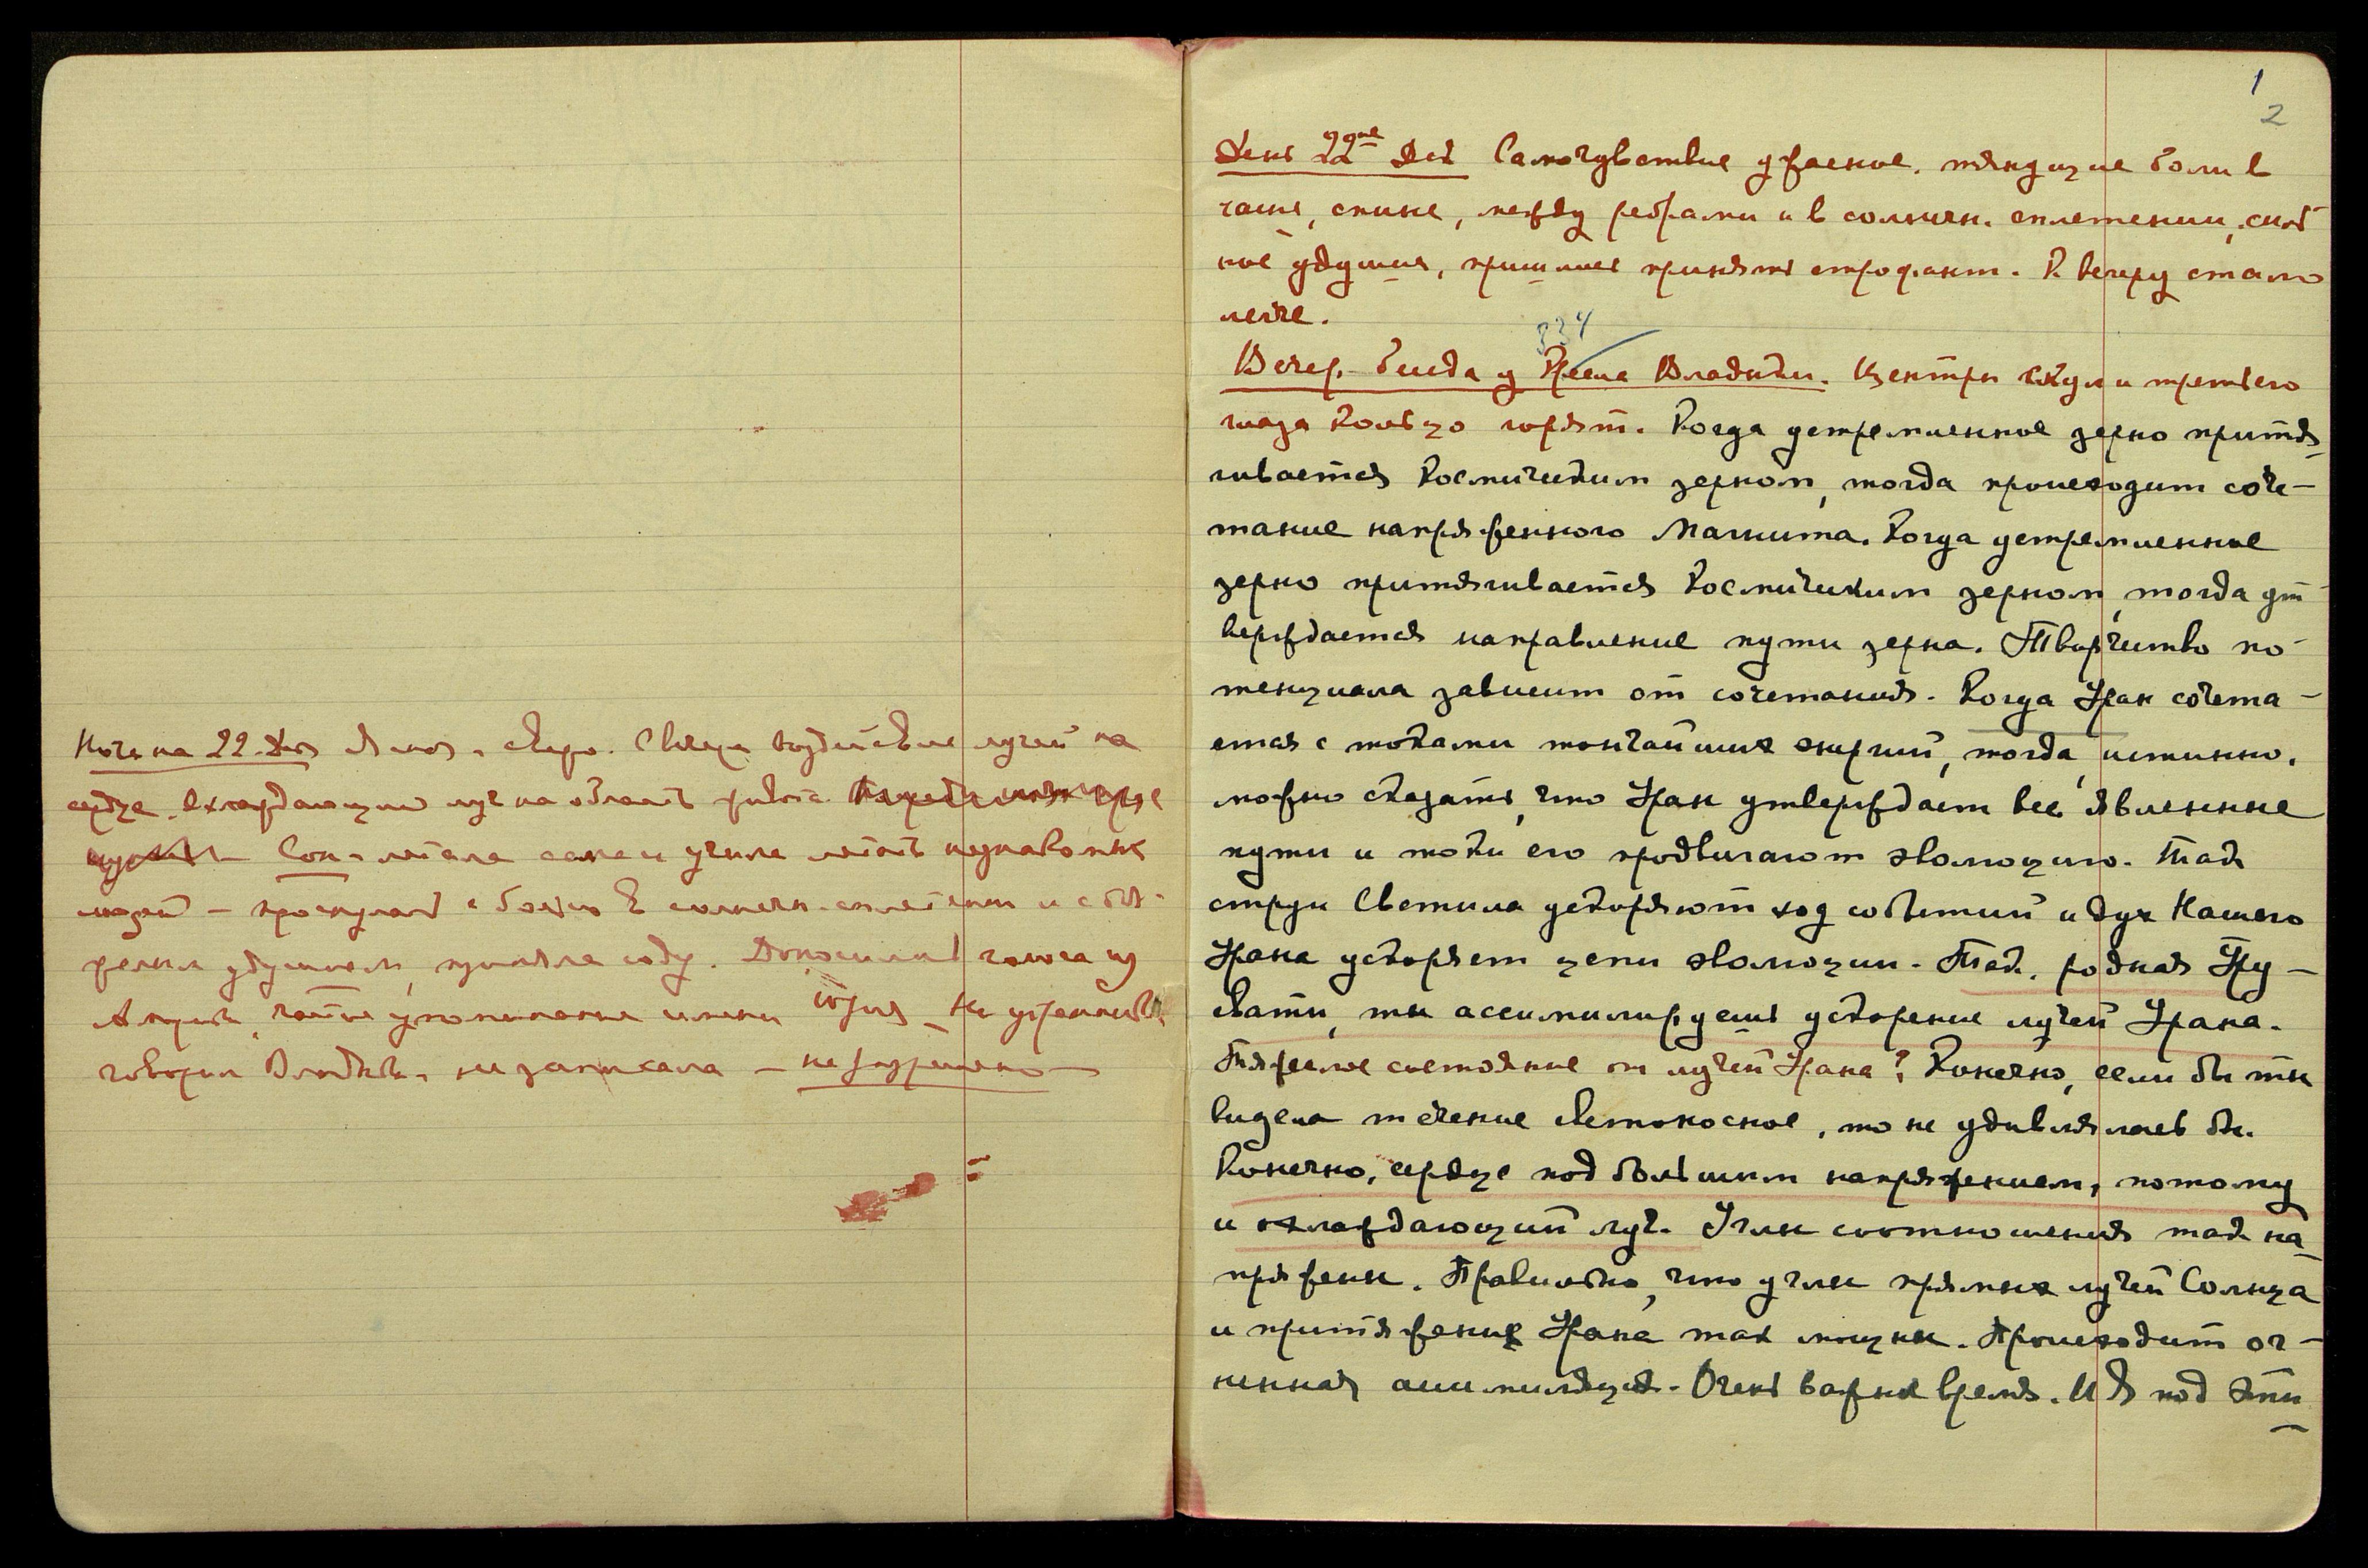 Ночь на 22. Дек
сердце. Охлаждающий луч на область
Сон - летала сама и учила летать незнакомых
людей - проснулась с болью в солнечн. сплетении и с
удушьем, приняла соду. Доносились голоса из
Америки, частое упоминание имени Юрия -
говорил Владыка, не записала - не разрешено -
1
2
День 22ое Дек Самочувствие ужасное. тянущие боли в
чаше, спине, между ребрами и в солнечн. сплетении,
ное удушье, пришлось принять строфант. К вечеру стало
легче.
334
Вечер. беседа у Кресла Владыки. Центры и третьего
глаза Кольцо горят. Когда устремленное зерно притя-
гивается Космическим зерном, тогда происходит соче-
тание напряженного Магнита. Когда устремленное
зерно притягивается Космическим зерном, тогда ут-
верждается направление пути зерна. Творчество по-
тенциала зависит от сочетания. Когда Уран сочета-
ется с токами тончайших энергий, тогда, истинно,
можно сказать, что Уран утверждает все явленные
пути и токи его продвигают эволюцию. Так
струи Светила ускоряют ход событий и дух Нашего
Урана ускоряет цепи эволюции. Так, родная Уру-
свати, ты ассимилируешь ускорение лучей Урана.
Тяжелое состояние от лучей Урана? Конечно, если бы ты
видела течение светоносное, то не удивлялась бы.
Конечно, сердце под большим напряжением, потому
и охлаждающий луч. Углы соотношения так на-
пряжены. Правильно, что углы прямых лучей Солнца
и притяжения Урана так мощны. Происходит ог-
ненная ассимиляция. Очень важное время. И Я под эти-